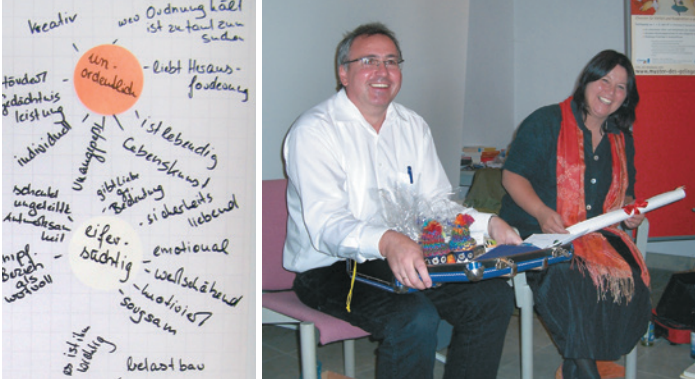 kreativ
wer Ordnung hält
ist zu faul zum
suchen
un-
ordentlich
liebt Heraus-
forderung
fördert
gedächtnis
leistung
individuell
unangepasst
ist lebendig
Lebenskunst
gibt Liebe
Bedeutung
sicherheits
liebend
schenkt
ungeteilte
Aufmerksam
keit
eifer-
süchtig
emotional
wertschätzend
motiviert
sorgsam
wertvoll
ist ihm
wichtig
belastbar